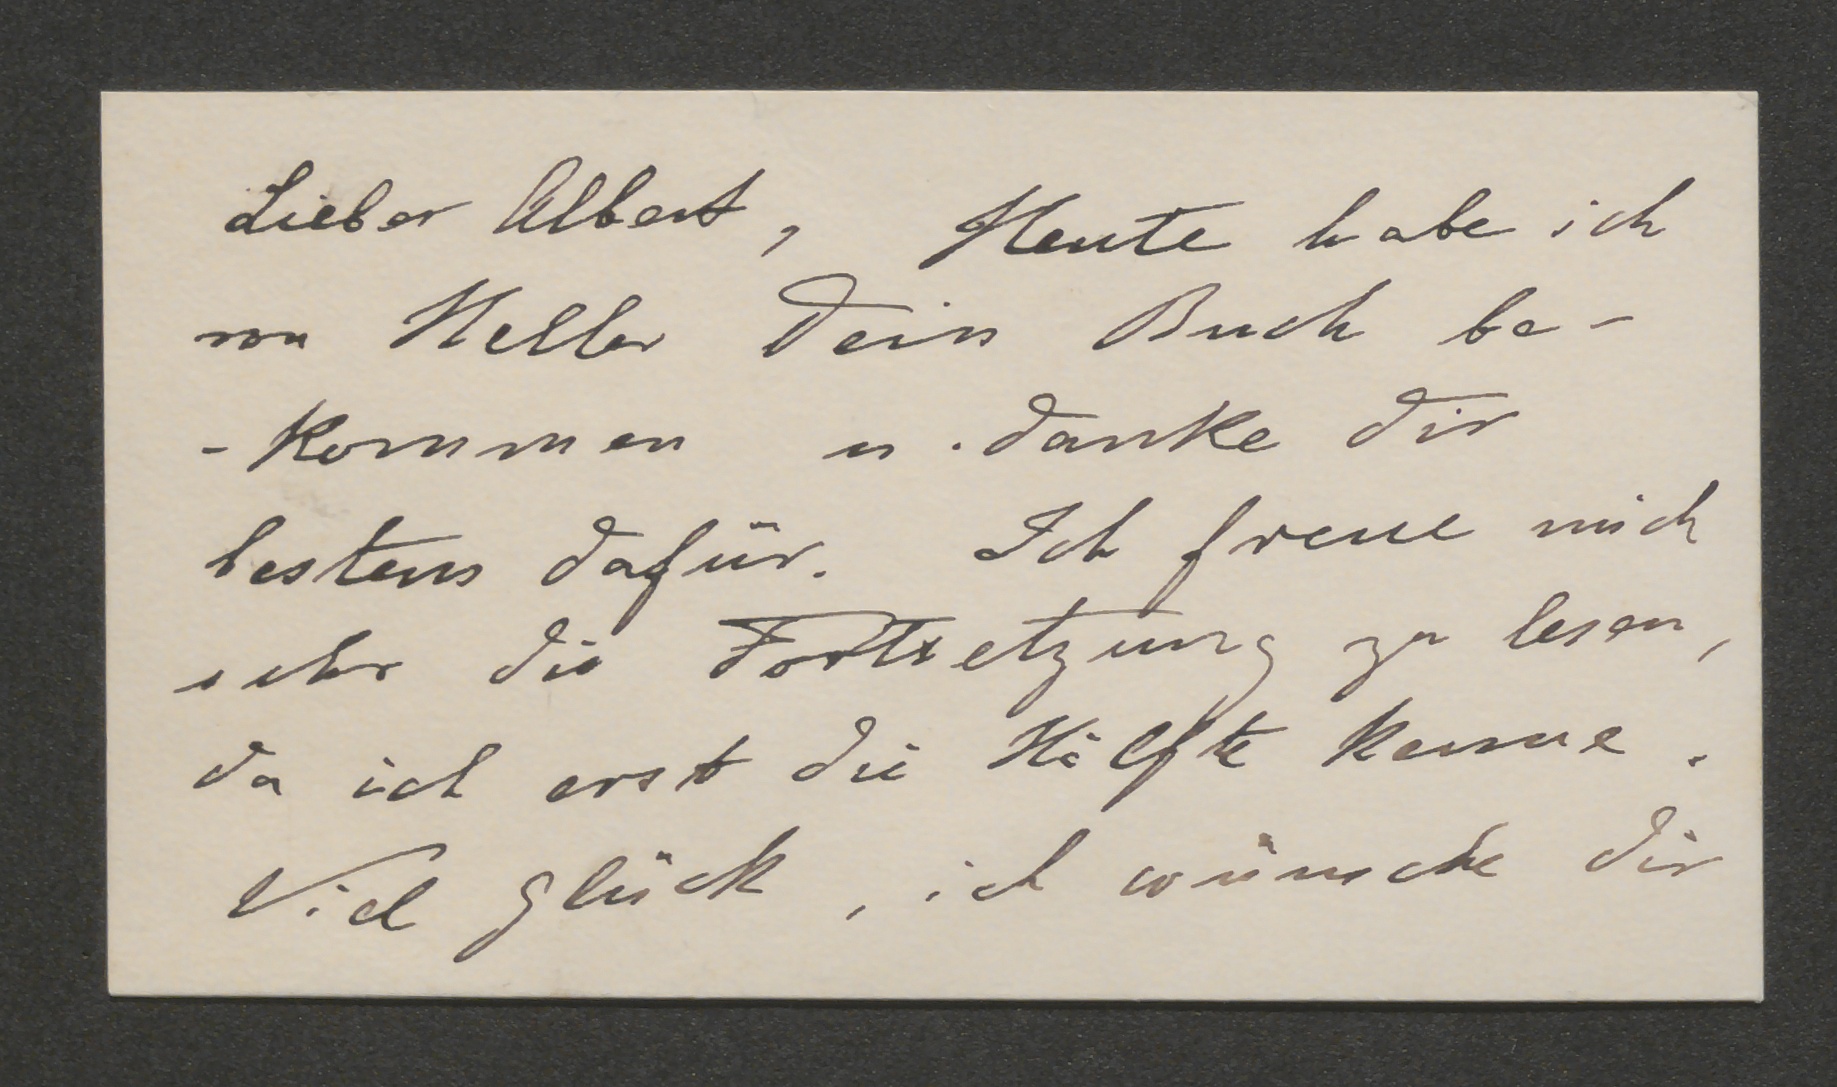 Lieber Albert, Heute habe ich
von Heller Dein Buch be-
-kommen u. danke Dir
bestens dafür. Ich freue mich
sehr die Fortsetzung zu lesen,
da ich erst die Hälfte kenne.
Viel glück, ich wünsche dir